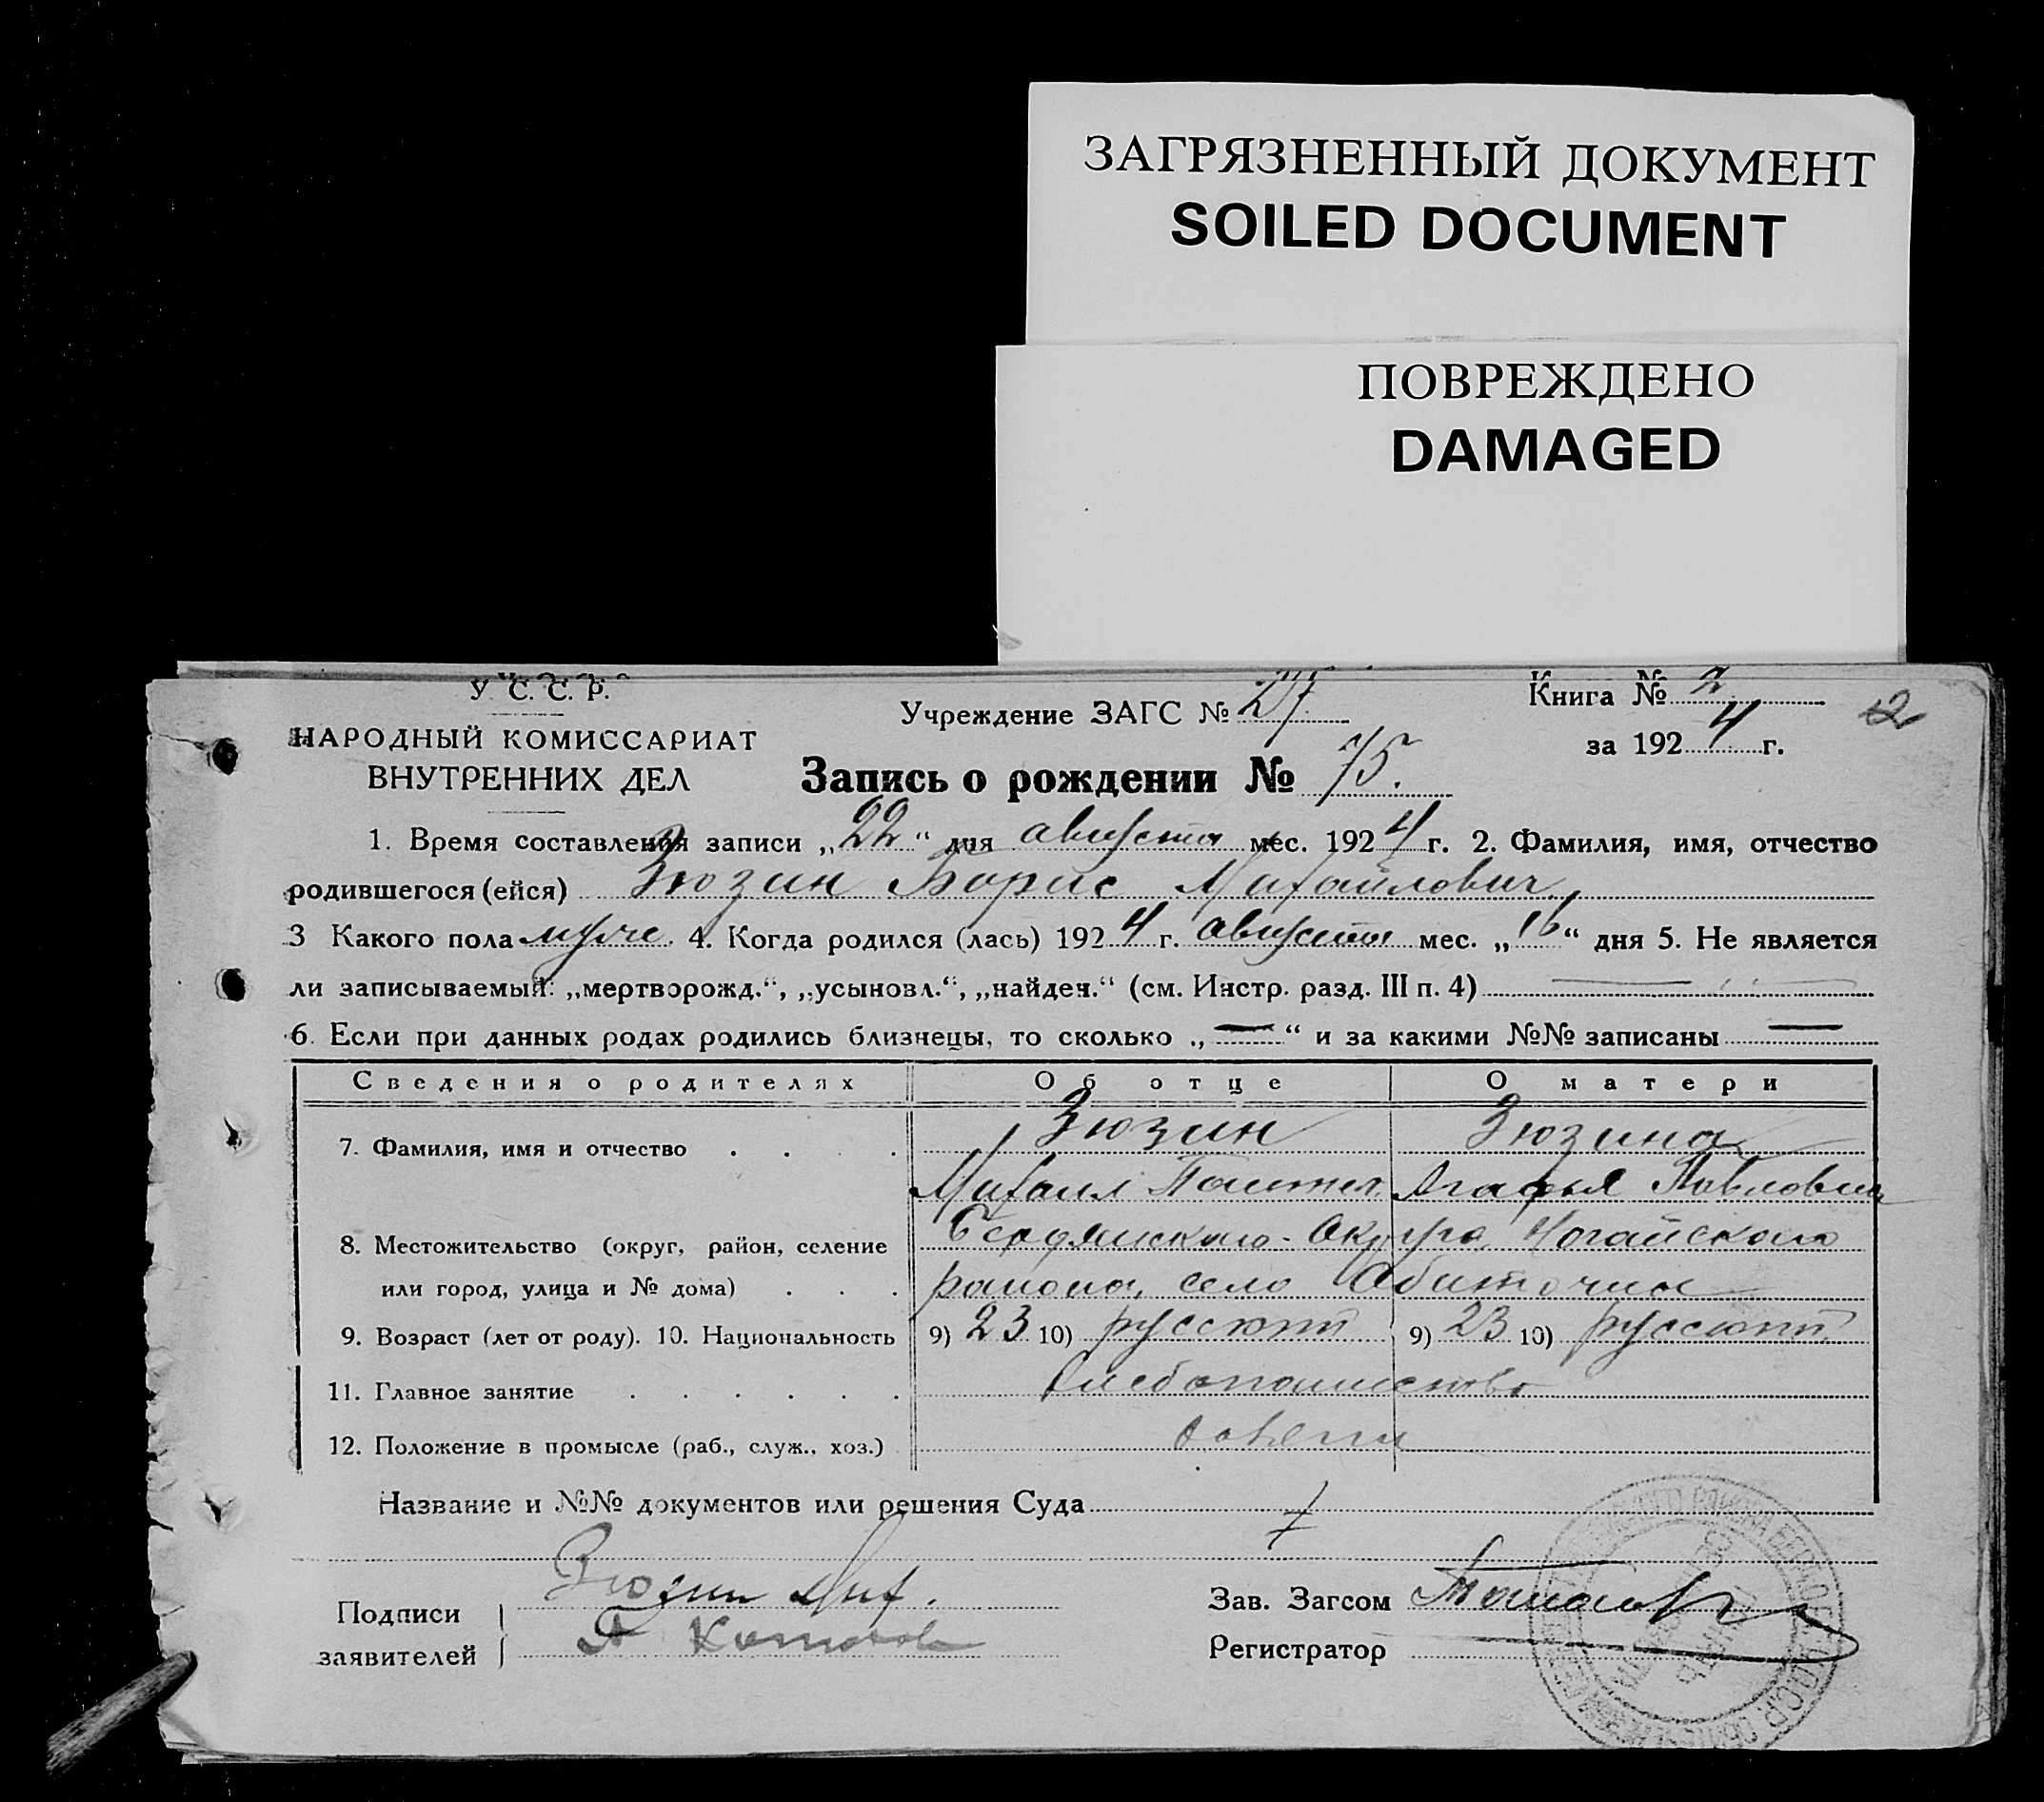 ЗАГРЯЗНЕННЫЙ ДОКУМЕНТ
SOILED DOCUMENT
ПОВРЕЖДЕНО
DAMAGED
У. С. С. Р.
НАРОДНЫЙ КОМИССАРИАТ
ВНУТРЕННИХ ДЕЛ
Учреждение ЗАГС № 27
Книга № 2
за 1924 г.
2
Запись о рождении № 75.
1. Время составления записи „22“ дня августа мес. 1924 г. 2. Фамилия, имя, отчество
родившегося (ейся) Зюзин Борис Михайлович
3 Какого пола муж. 4. Когда родился (лась) 1924 г. августа мес. „16“ дня 5. Не является
ли записываемый: „мертворожд.“, „усыновл.“, „найден.“ (см. Инстр. разд. III п. 4) —
6. Если при данных родах родились близнецы, то сколько „—“ и за какими №№ записаны —
Сведения о родителях Об отце О матери
7. Фамилия, имя и отчество Зюзин Зюзина
Михаил Агафья Павловна
8. Местожительство (округ, район, селение Бердянского Округа, Ногайского
или город, улица и № дома) района, село Обиточная
9. Возраст (лет от роду). 10. Национальность 9) 23 10) русский 9) 23 10) русский
11. Главное занятие хлебопашество
12. Положение в промысле (раб., служ., хоз.)
Название и №№ документов или решения Суда
Подписи
заявителей
Зюзин Мих.
А
Зав. Загсом
Регистратор